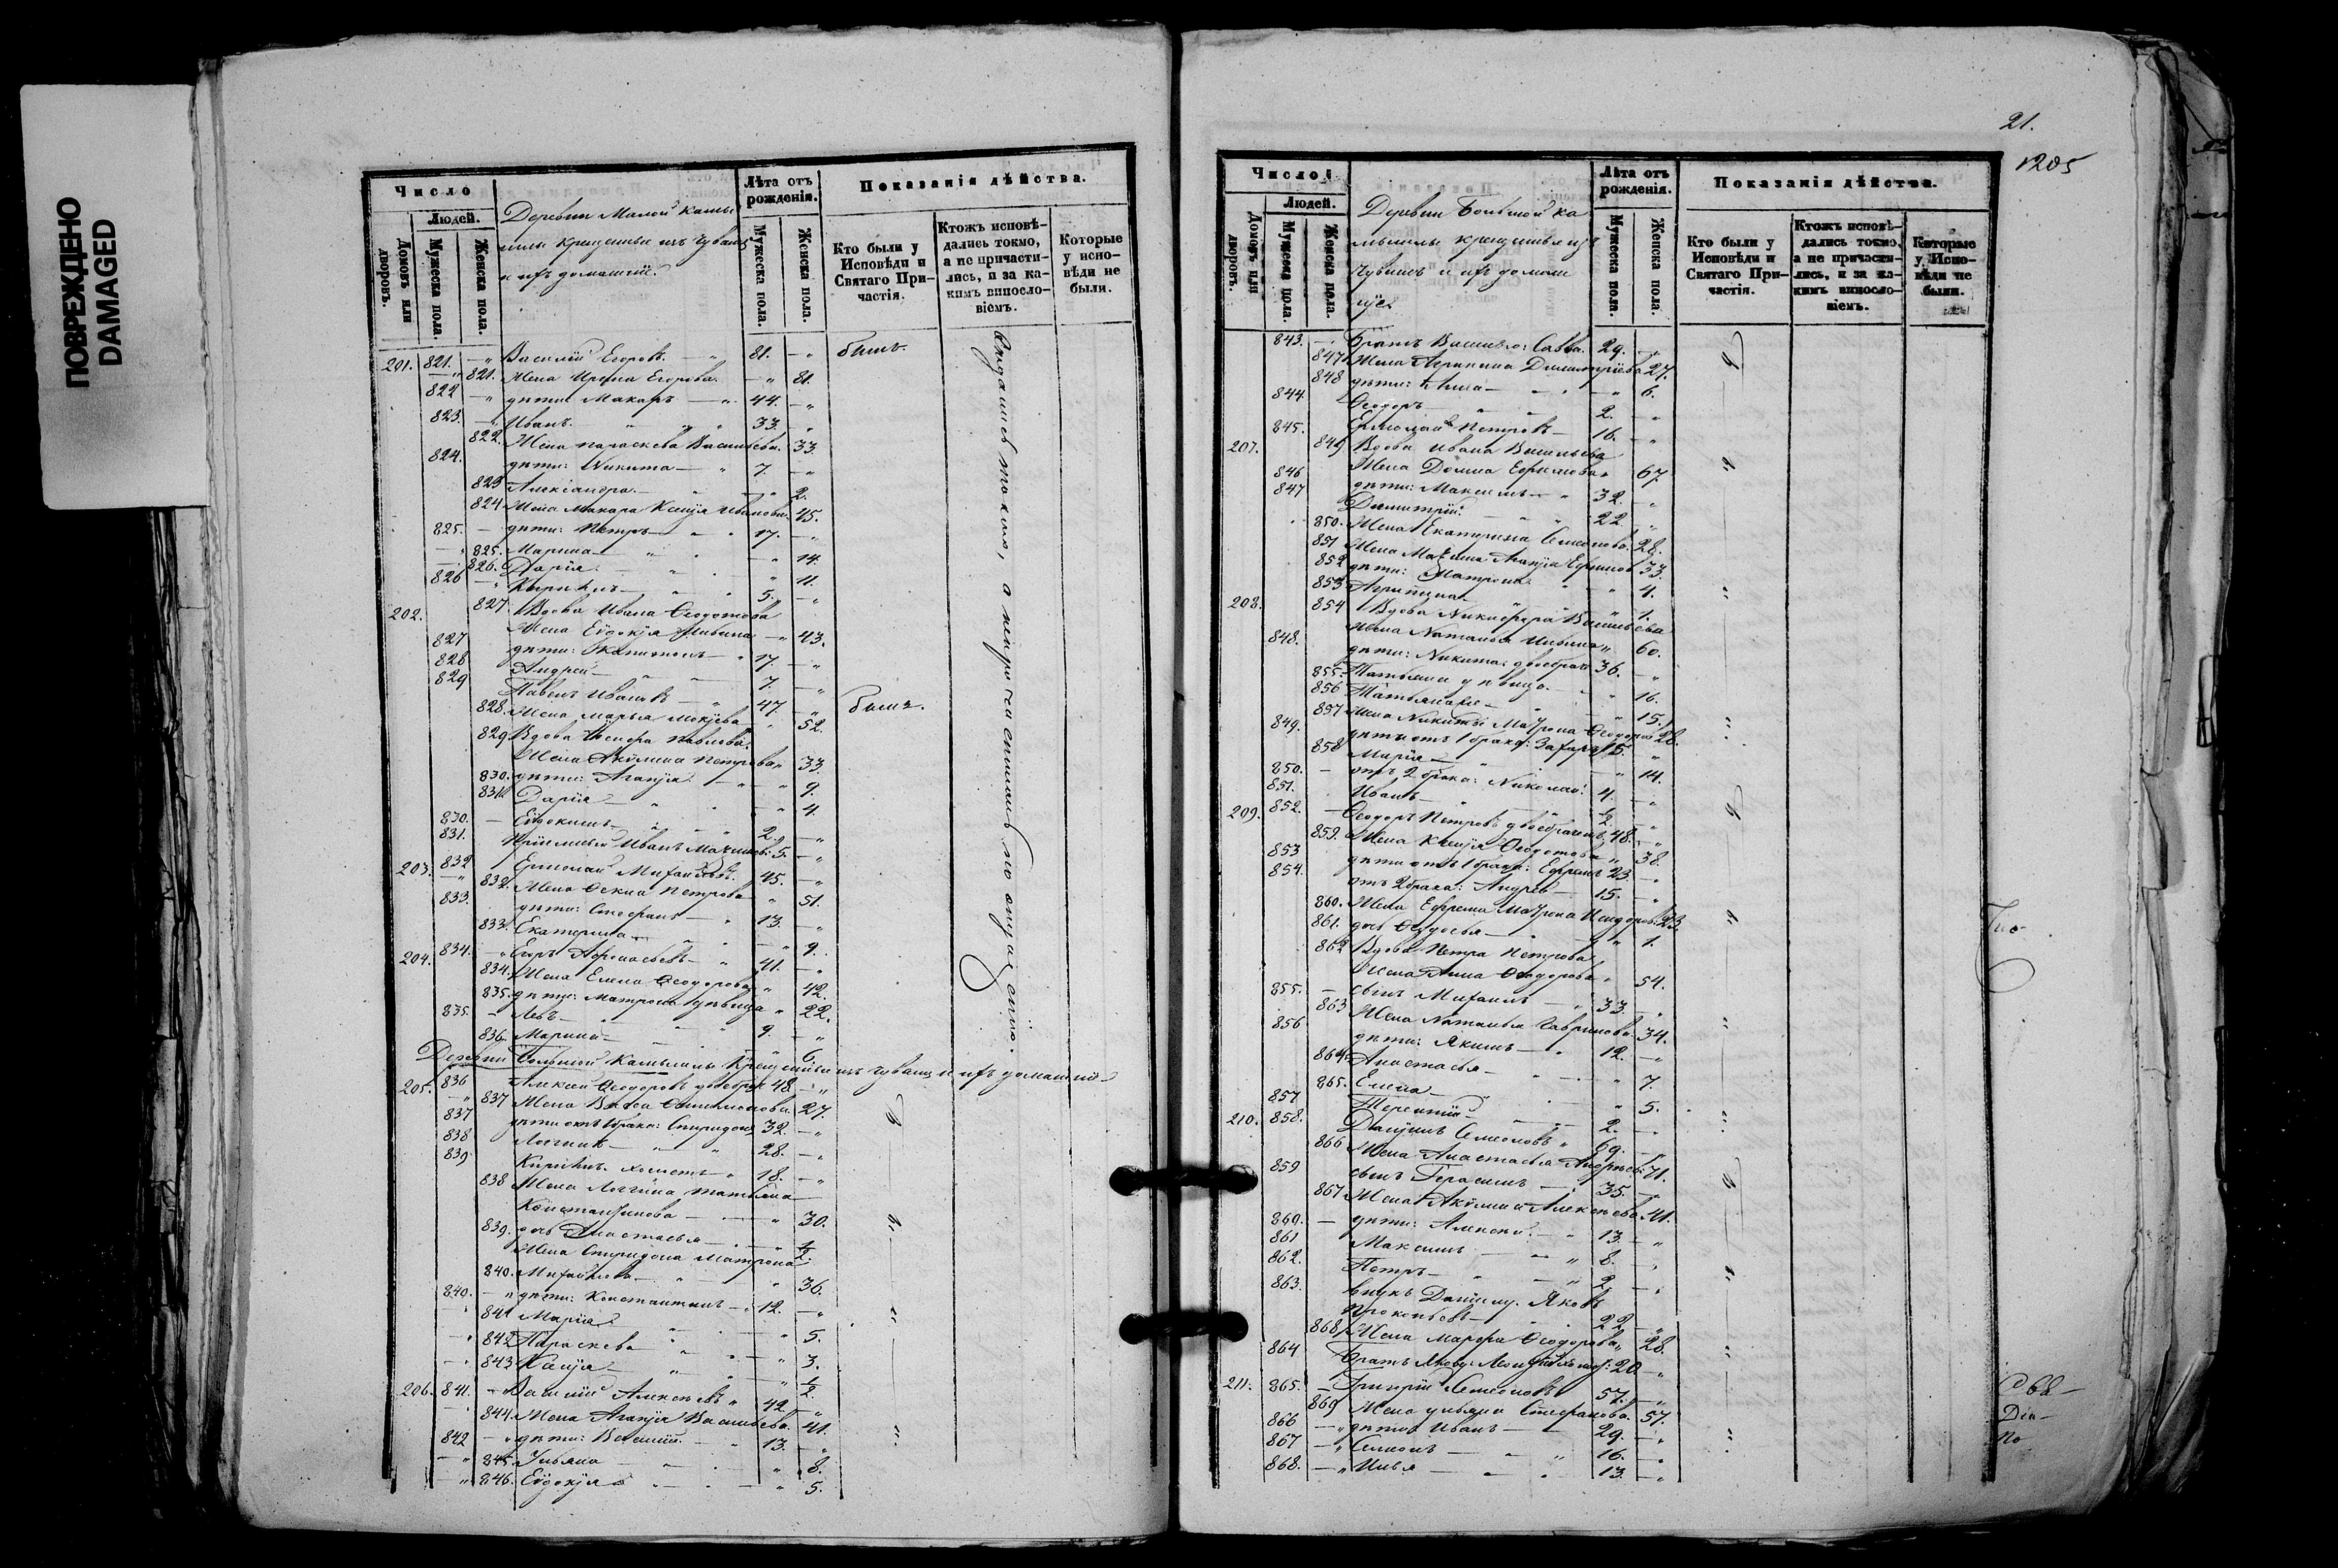 ПОВРЕЖДЕНО
DAMAGED
Число
Людей.
Домовъ или дворовъ.
Мужеска пола
Женска пола.
Деревни Малой Камы
шлы крещеныи изъ чувашъ
и ихъ домашніи.
Лѣта отъ рожденія.
Мужеска пола.
Женска пола.
Показанія дѣйства.
Кто были у Исповѣди и Святаго Причастія.
Ктожъ исповѣдались токмо, а не причастились, и за какимъ винословіемъ.
Которые у исповѣди не были.
201. 821. Василій Егоровъ 81. были.
821. Жена Ирина Егорова 81.
822 дѣти: Макаръ 44.
823. Иванъ 33.
822. Жена Параскева Васильева 33.
824. дѣти: Никита 7.
823 Александра 2.
824 Жена Макара Ксенія Иванова 45.
825. дѣти: Петръ 17.
825. Марина 14.
826. Дарія 11.
826 Кириллъ 5.
202. 827 Вдова Ивана Ѳеодотова
Жена Евдокія 43.
827 дѣти: Капитонъ 17.
828 Андрей 7.
829 Павелъ Ивановъ 47. были.
828. Жена Марья 52.
829 Вдова Павлова
Жена Акулина Петрова 33.
830. дѣти: Агапія 9.
831. Дарія 4.
830. Евдокимъ 2.
831. Пріемышъ Иванъ 5.
203. 832 Ермолай Михайловъ 45.
832. Жена Ѳекла Петрова 51.
833. дѣти: Стефанъ 13.
833. Екатерина 9.
204. 834. Егоръ Аѳонасьевъ 41.
834. Жена Елена Ѳеодорова 42.
835. дѣти: Матрона дѣвица 22.
835. Левъ 9.
836 Марина 6.
Деревни Большой Камышлы крещеныи изъ чувашъ и ихъ домашніи
205. 836 Алексей Ѳеодоровъ 48.
837 Жена 27.
837 дѣти отъ 1 брака: Спиридонъ 32.
838 Логинъ 28.
839 Кириллъ холостъ 18.
838 Жена Логгина Татьяна
Константинова 30.
839. дочь Анастасья 1/2.
Жена Спиридона Матрона
840. Михайлова 36.
840. дѣти: Константинъ 12.
841 Марія 5.
842 Параскева 3.
843 Ксенія 1/2.
206. 841. Василій Алексѣевъ 42.
844. Жена Агапія Васильева 41.
842 дѣти: Василій 13.
845. Ульяна 8.
846. Евдокія 5.
21.
1205
Число
Людей.
Домовъ или дворовъ.
Мужеска пола.
Женска пола.
Деревни Большой Ка
мышлы крещеныи изъ
чувашъ и ихъ домаш
ніе
Лѣта отъ рожденія.
Мужеска пола.
Женска пола.
Показанія дѣйства.
Кто были у Исповѣди и Святаго Причастія.
Ктожъ исповѣдались токмо, а не причастились, и за какимъ винословіемъ.
Которые у Исповѣди не были.
843. Братъ Василья: Савва 29.
847 Жена Агрипина Димитріева 27.
848 дѣти: Анна 6.
844. Ѳеодоръ 2.
845. Ермолай Петровъ 16.
207. 849 Вдова Ивана Васильева
Жена Домна Ефимова 67.
846 дѣти: Максимъ 32.
847 Димитрій 22
850. Жена Екатерина Семенова 28.
851 Жена Максима Агапія Ефимов. 33.
852 дѣти: Матрона 4.
853 Агрипина 1.
208. 854 Вдова Никифора Васильева
Жена Наталья 60.
848. дѣти: Никита двоебрач. 36.
855. Татьяна дѣвица 16.
856 15.
857 Жена Никиты Матрона Ѳеодоров. 28.
849. дѣти отъ 1 брака: Захаръ 15.
858 Марія 14.
850. отъ 2 брака: Николай 4.
851. Иванъ 1/2.
209. 852. Ѳеодоръ Петровъ двоебрачен. 48.
859. Жена Ксенія Ѳеодотова 38.
853 дѣти отъ 1 брака: Ефремъ 23.
854. отъ 2 брака: Андрей 15.
860. Жена Ефрема Матрона 23.
861. дочь Ѳедосья 1.
862 Вдова Петра Петрова
Жена Анна Ѳеодорова 54.
855. сынъ Михаилъ 33.
863 Жена Наталья Гаврилова 34.
856 дѣти: Якимъ 12.
864. Анастасья 7.
865. Елена 5.
857 Терентій 2.
210. 858. Даніилъ Семеновъ 69.
866 Жена Анастасья Андреева 71.
859 сынъ Герасимъ 35.
867 Жена Акулина Алексѣева 41.
860. дѣти: Алексей 13.
861 Максимъ 8.
862. Петръ 2.
863. внукъ Даніилу Яковъ
Прокопьевъ 22
868. Жена Марѳа Ѳеодорова 28.
864 Братъ Якову: 20
211. 865. Григорій Семеновъ 57.
869 Жена Ульяна Стефанова 57.
866 дѣти: Иванъ 29.
867 Семенъ 16.
868. Илья 13.